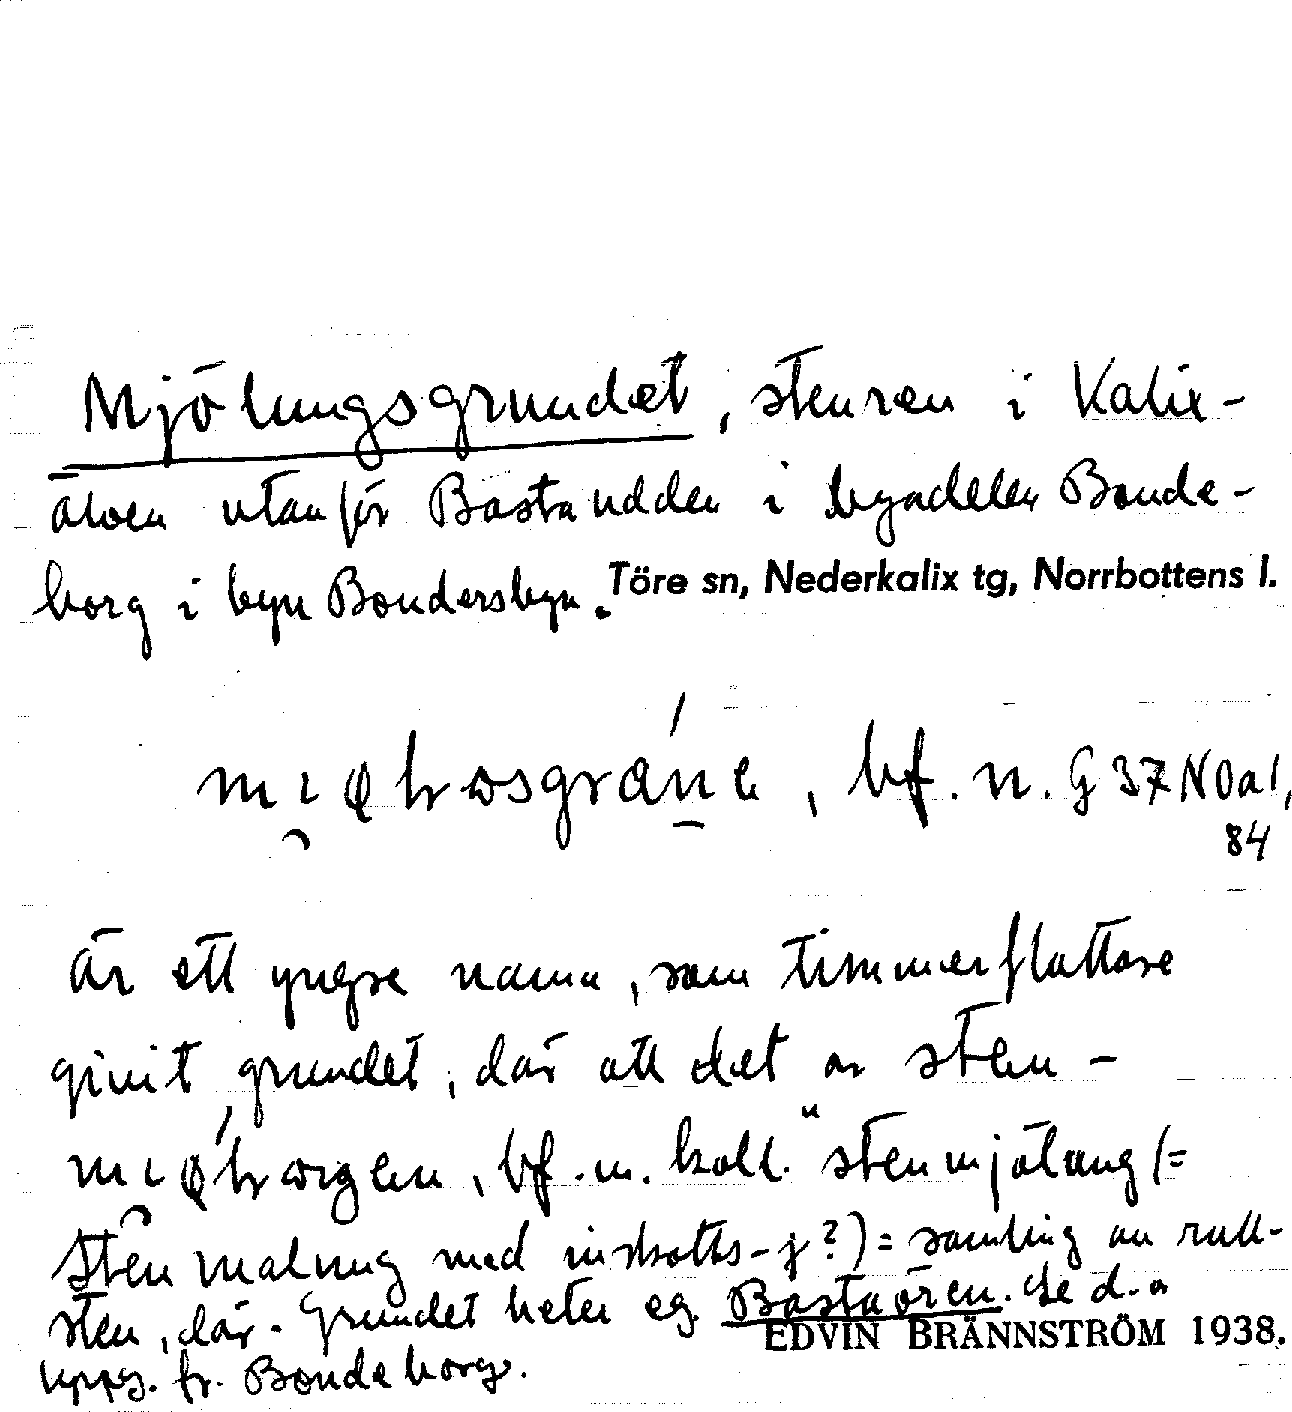 Mjölungsgrundet, stenren i Kalix-
älven utanför Bastaudden i byadelen Bonde-
borg i byn Bondersbyn. Töre sn, Nederkalix tg, Norrbottens l.
bf. n. G 37 N 0 a 1,
84
Är ett yngre namn, som timmerflottare
givit grundet, där att det är sten-
bf. n. koll. "stenmjölung (=
Stenmalnug med inskotts-j?) = samling av rull-
sten, där. Grundet heter eg. Bastaören. Se d.o
EDVIN BRÄNNSTRÖM 1938.
uppg. fr. Bondeborg.